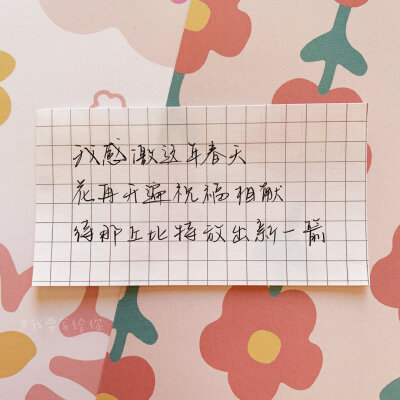 我感激这年春天
花再开遍祝福相献
待那丘比特放出新一箭